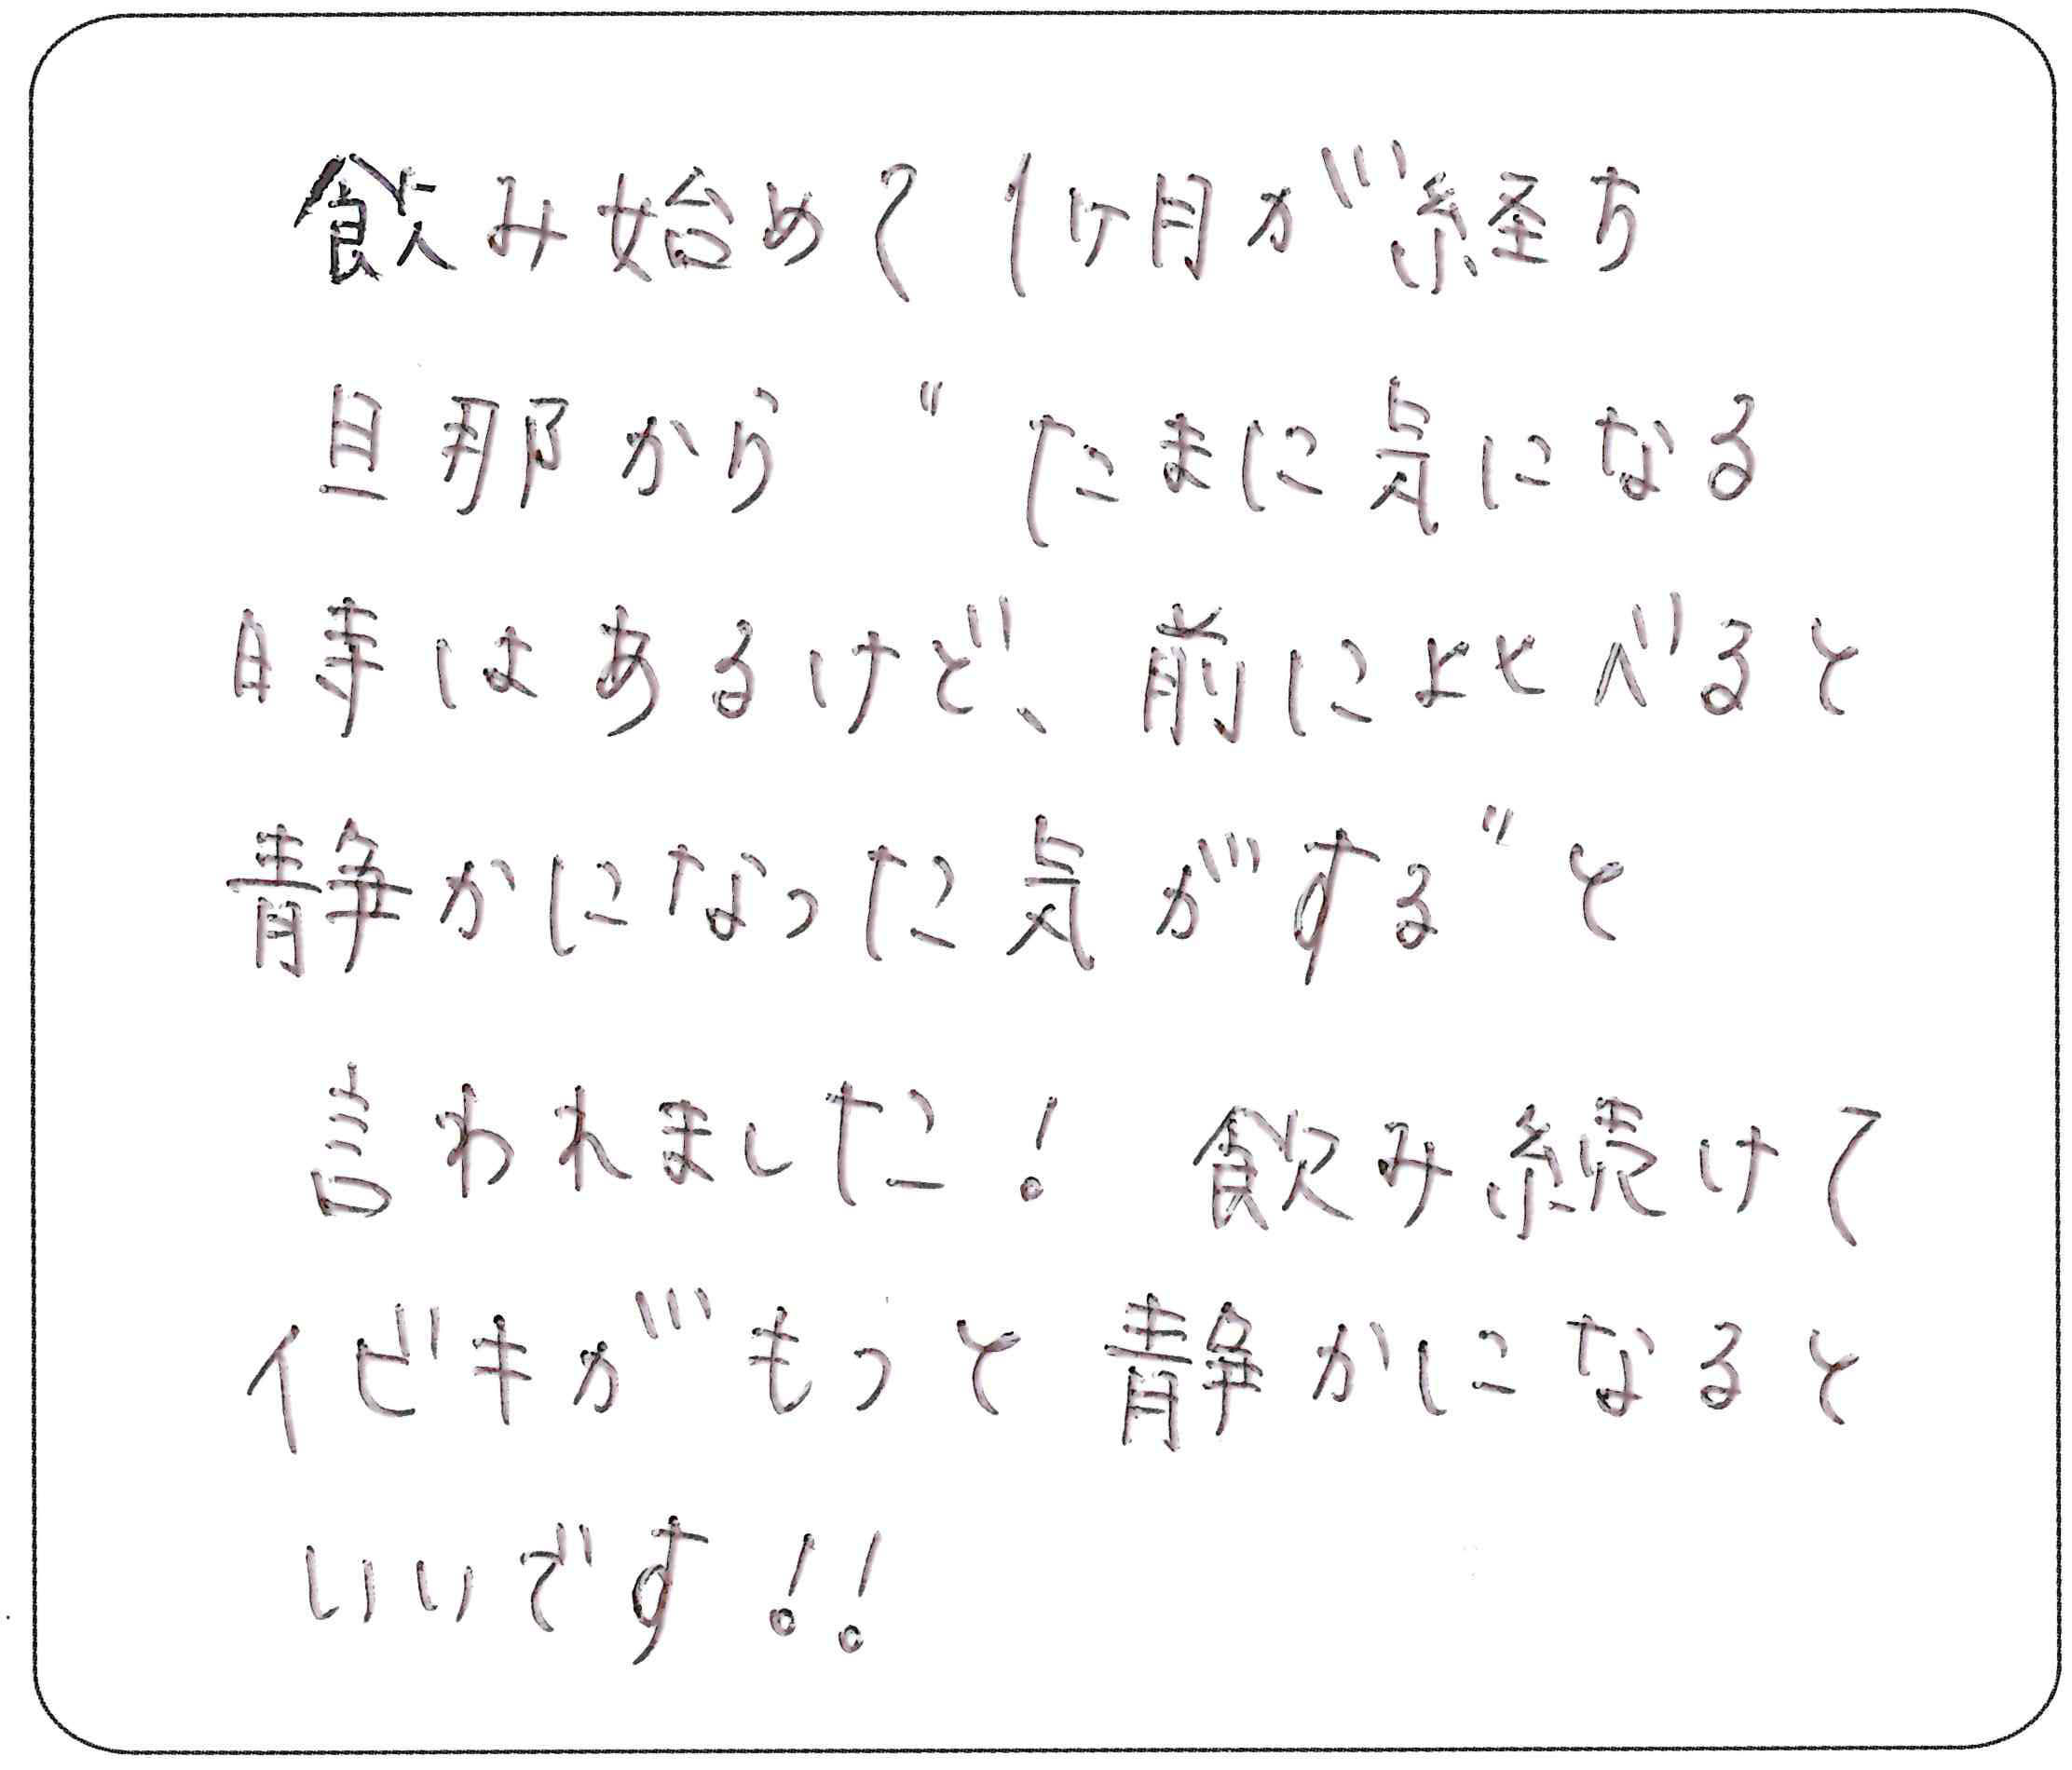 飲み始めて1ヶ月が経ち
旦那から〝たまに気になる
時はあるけど、前に比べると
静かになった気がする〟と
言われました! 飲み続けて
イビキがもっと静かになると
いいです!!